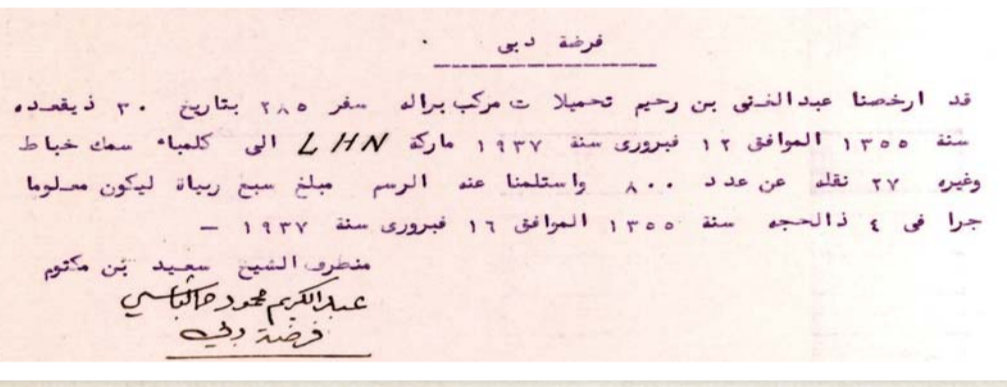 فرضة دبى
قد ارخصنا عبدالغنى بن رحيم تحميلا ت مركب براله سفر ٢٨٥ بتاريخ ٣٠ ذيقعده
سنة ١٣٥٥ الموافق ١٢ فبرورى سنة ١٩٣٧ ماركة LHN الى كلمباء سمك خباط
وغيره ٢٧ نقله عن عدد ٨٠٠ واستلمنا عنه الرسم مبلغ سبع ربياة ليكون معلوما
جرا فى ٤ ذالحجه سنة ١٣٥٥ الموافق ١٦ فبرورى سنة ١٩٣٧ –
منطرف الشيخ سعيد بن مكتوم
عبدالكريم محمود
فرضة دبي